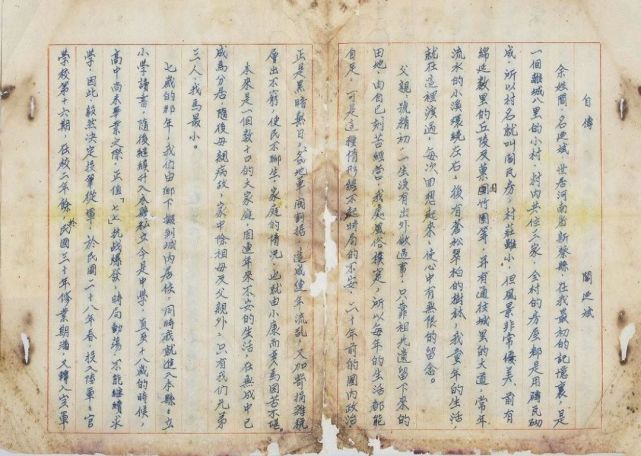 自傳
閻迺斌
余姓閻,名迺斌,世居河南省新蔡縣,在我最初的記憶裏,是
一個離城八里的小村,村內共住三家,全村的房屋都是用磚瓦砌
成,所以村名就叫閻瓦房,村莊雖小,但風景非常優美,前有
綿延數里的丘陵及菓園竹園等,并有通 城里的大道,常年
流水的小溪環繞左右,後有蒼松翠柏的樹林,我童年的生活,
就在這裡渡過,每次回想起來,使心中有無限的留念。
父親號精初,一生沒有出外做過事,只靠祖先遺留下來的
田地,由自己刻苦經營,我處風俗樸實,所以每年的生活都能
自足,可是這種情形經不起時局的不安,二十年前的國內政治
正是黑暗無日,各地軍閥割據,造成連年流亂,又加苛捐雜稅
層出不窮,使民不聊生,家庭的情況,也就由小康而變為困苦不堪。
本來是一個數十口的大家庭,因連年來不安的生活,在無成中已
成為分居,隨後母親病故,家中除祖母及父親外,只有我們兄弟
三人,我為最小。
七歲的那年,我們由鄉下搬到城內居住,同時我就進入本縣縣立
小學讀書,隨後繼續升入本縣私立今是中學,直至十八歲的時候,
高中尚未畢業之際,正值「七七」抗戰爆發,時局動蕩,不能繼續求
學,因此,毅然決定投筆從軍,於民國二十八年春,投入陸軍軍官
學校第十六期,在校二年餘,於民國三十年修業期滿,又轉入空軍